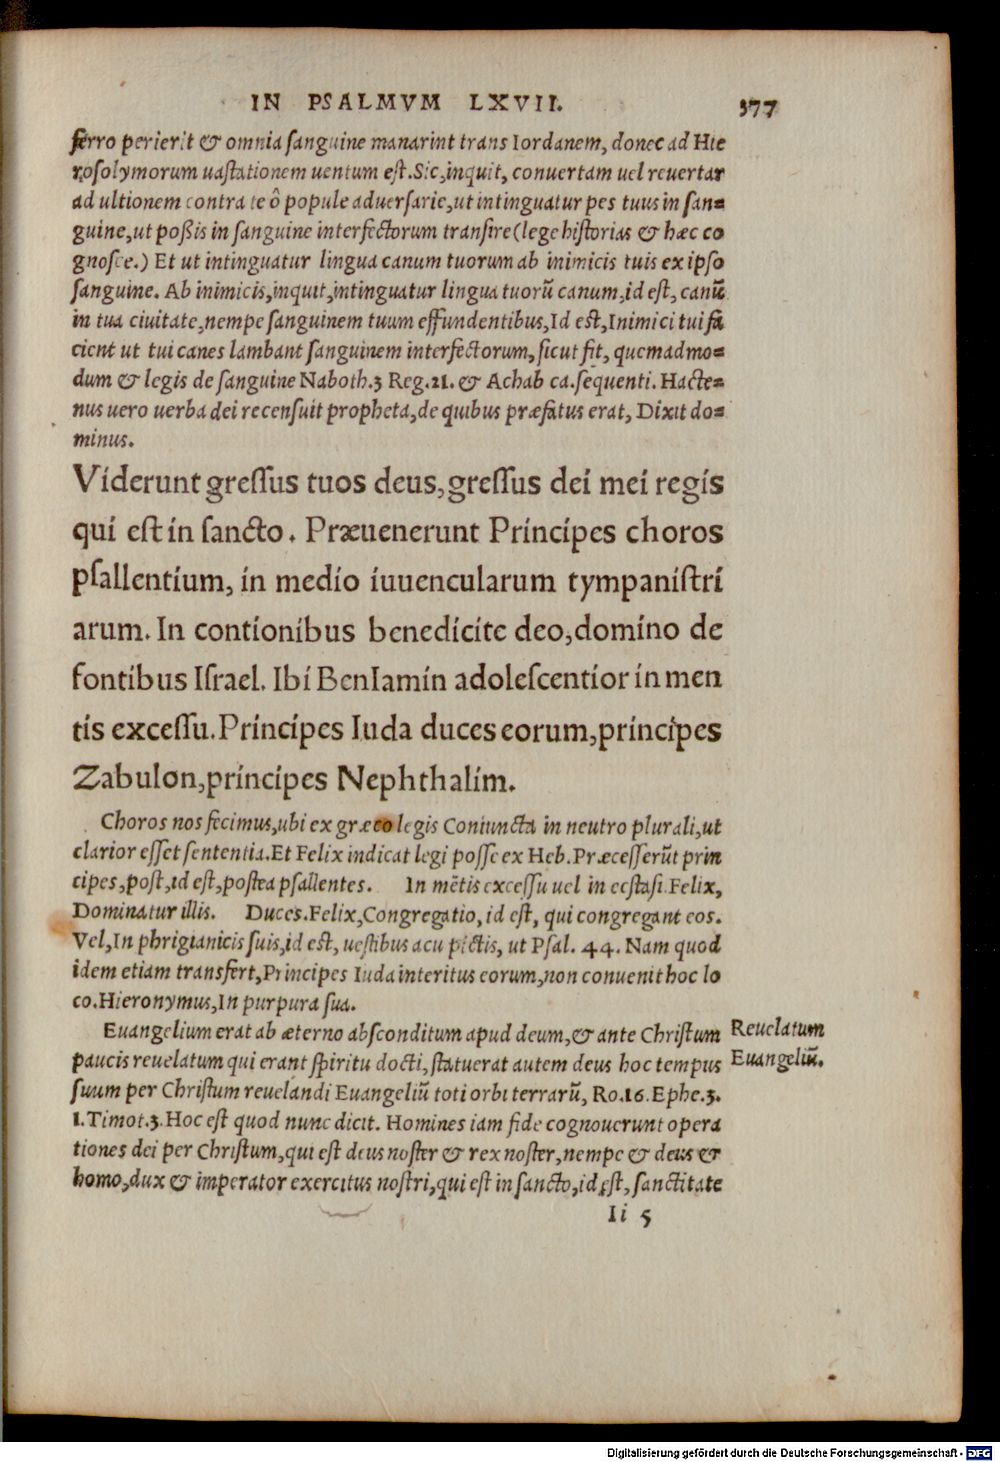 IN PSALMVM LXVII. 377
ferro perierit & omnia sanguine manarint trans Iordanem, donec ad Hie
rosolymorum uastationem uentum est. Sic, inquit, conuertam uel reuertar
ad ultionem contra te ô popule aduersarie, ut intinguatur pes tuus in san=
guine, ut poßis in sanguine interfectorum transire (lege historias & hæc co
gnosce.) Et ut intinguatur lingua canum tuorum ab inimicis tuis ex ipso
sanguine. Ab inimicis, inquit, intinguatur lingua tuorū canum, id est, canū
in tua ciuitate, nempe sanguinem tuum effundentibus, Id est, Inimici tui fa
cient ut tui canes lambant sanguinem interfectorum, sicut fit, quemadmo=
dum & legis de sanguine Naboth. 3 Reg. 21. & Achab ca. sequenti. Hacte=
nus uero uerba dei recensuit propheta, de quibus præfatus erat, Dixit do=
minus.
Viderunt gressus tuos deus, gressus dei mei regis
qui est in sancto. Præuenerunt Principes choros
psallentium, in medio iuuencularum tympanistri
arum. In contionibus benedicite deo, domino de
fontibus Israel. Ibi BenIamin adolescentior in men
tis excessu. Principes Iuda duces eorum, principes
Zabulon, principes Nephthalim.
Choros nos fecimus, ubi ex græco legis Coniuncta in neutro plurali, ut
clarior esset sententia. Et Felix indicat legi posse ex Heb. Præcesserūt prin
cipes, post, id est, postea psallentes. In mētis excessu uel in ecstasi. Felix,
Dominatur illis. Duces. Felix, Congregatio, id est, qui congregant eos.
Vel, In phrigianicis suis, id est, uestibus acu pictis, ut Psal. 44. Nam quod
idem etiam transfert, Principes Iuda interitus eorum, non conuenit hoc lo
co. Hieronymus, In purpura sua.
Euangelium erat ab æterno absconditum apud deum, & ante Christum
paucis reuelatum qui erant spiritu docti, statuerat autem deus hoc tempus
suum per Christum reuelandi Euangeliū toti orbi terrarū, Ro. 16. Ephe. 3.
1. Timot. 3. Hoc est quod nunc dicit. Homines iam fide cognouerunt opera
tiones dei per Christum, qui est deus noster & rex noster, nempe & deus &
homo, dux & imperator exercitus nostri, qui est in sancto, id est, sanctitate
Reuelatum
Euangeliū.
Ii 5
Digitalisierung gefördert durch die Deutsche Forschungsgemeinschaft - DFG